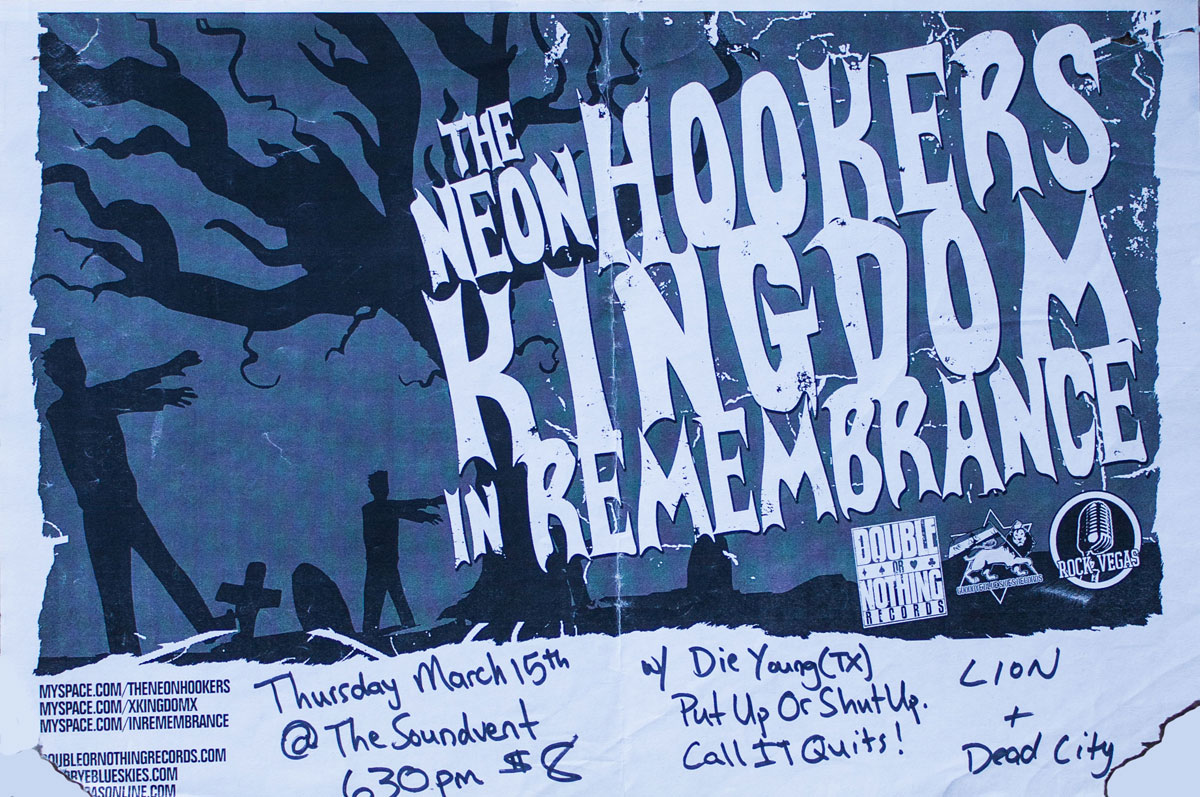 THE
NEON HOOKERS
KINGDOM
IN REMEMBRANCE
DOUBLE
OR
NOTHING
RECORDS
ROCK VEGAS
MYSPACE.COM/THENEONHOOKERS
MYSPACE.COM/XKINGDOMX
MYSPACE.COM/INREMEMBRANCE
OUBLEORNOTHINGRECORDS.COM
BYEBLUESKIES.COM
GASONLINE.COM
Thursday March 15th
@ The Soundvent
630pm $8
w/ Die Young (TX)
Put Up Or Shut Up.
Call IT Quits!
LION
+
Dead City